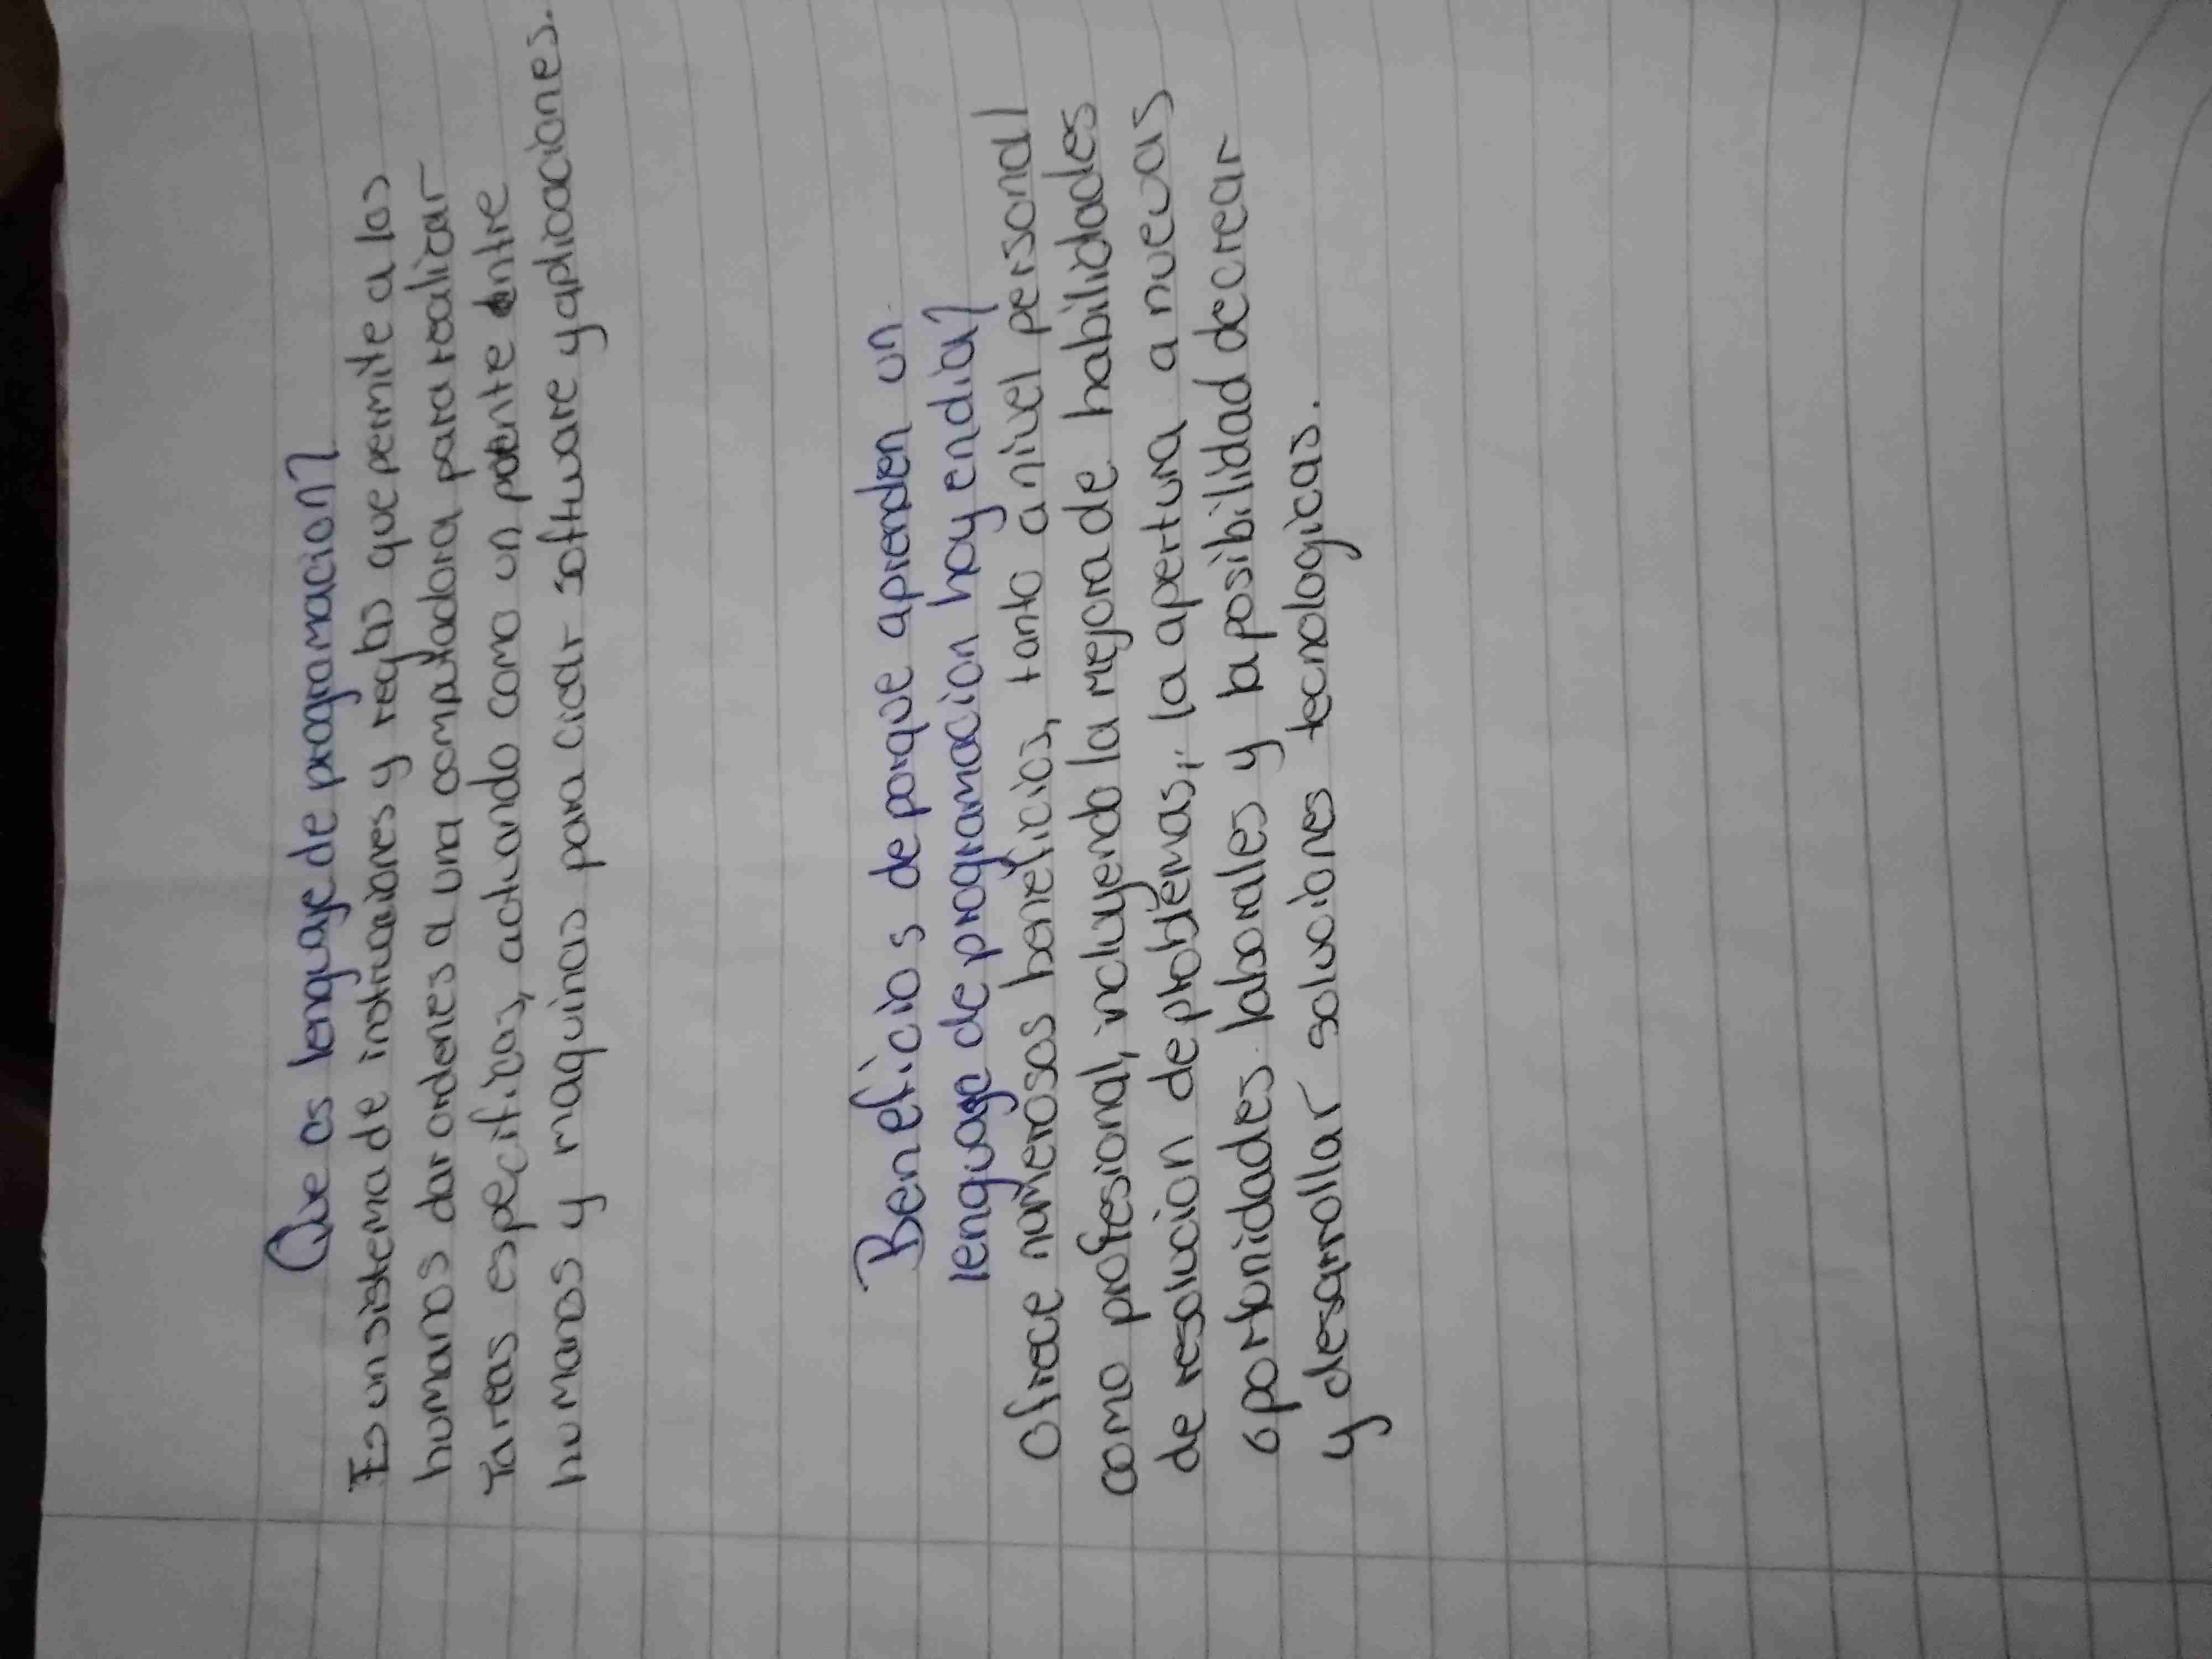 Que es lenguaje de programacion?
Es un sistema de instrucciones y reglas que permite a los
humanos dar ordenes a una computadora para realizar
Tareas especificas, actuando como un puente entre
humanos y maquinas para crear software y aplicaciones.
Beneficios de porque aprenden un
lenguaje de programacion hoy en dia?
Ofrece numerosos beneficios, tanto a nivel personal
como profesional, incluyendo la mejora de habilidades
de resolucion de problemas, la apertura a nuevas
oportunidades laborales y la posibilidad de crear
y desarrollar soluciones tecnologicas.